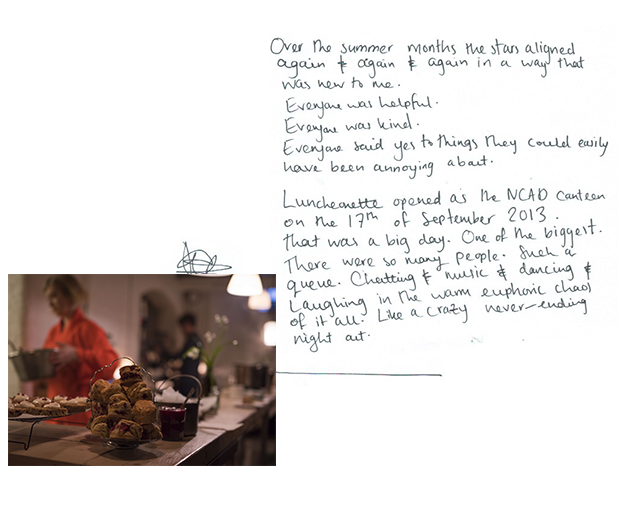 Over the summer months the stars aligned
again & again & again in a way that
was new to me.
Everyone was helpful.
Everyone was kind.
Everyone said yes to things they could easily
have been annoying about.
Luncheonette opened as the NCAD canteen
on the 17th of September 2013.
That was a big day. One of the biggest.
There were so many people. Such a
queue. Chatting & music & dancing &
Laughing in the warm euphoric chaos
of it all. Like a crazy never-ending
night out.